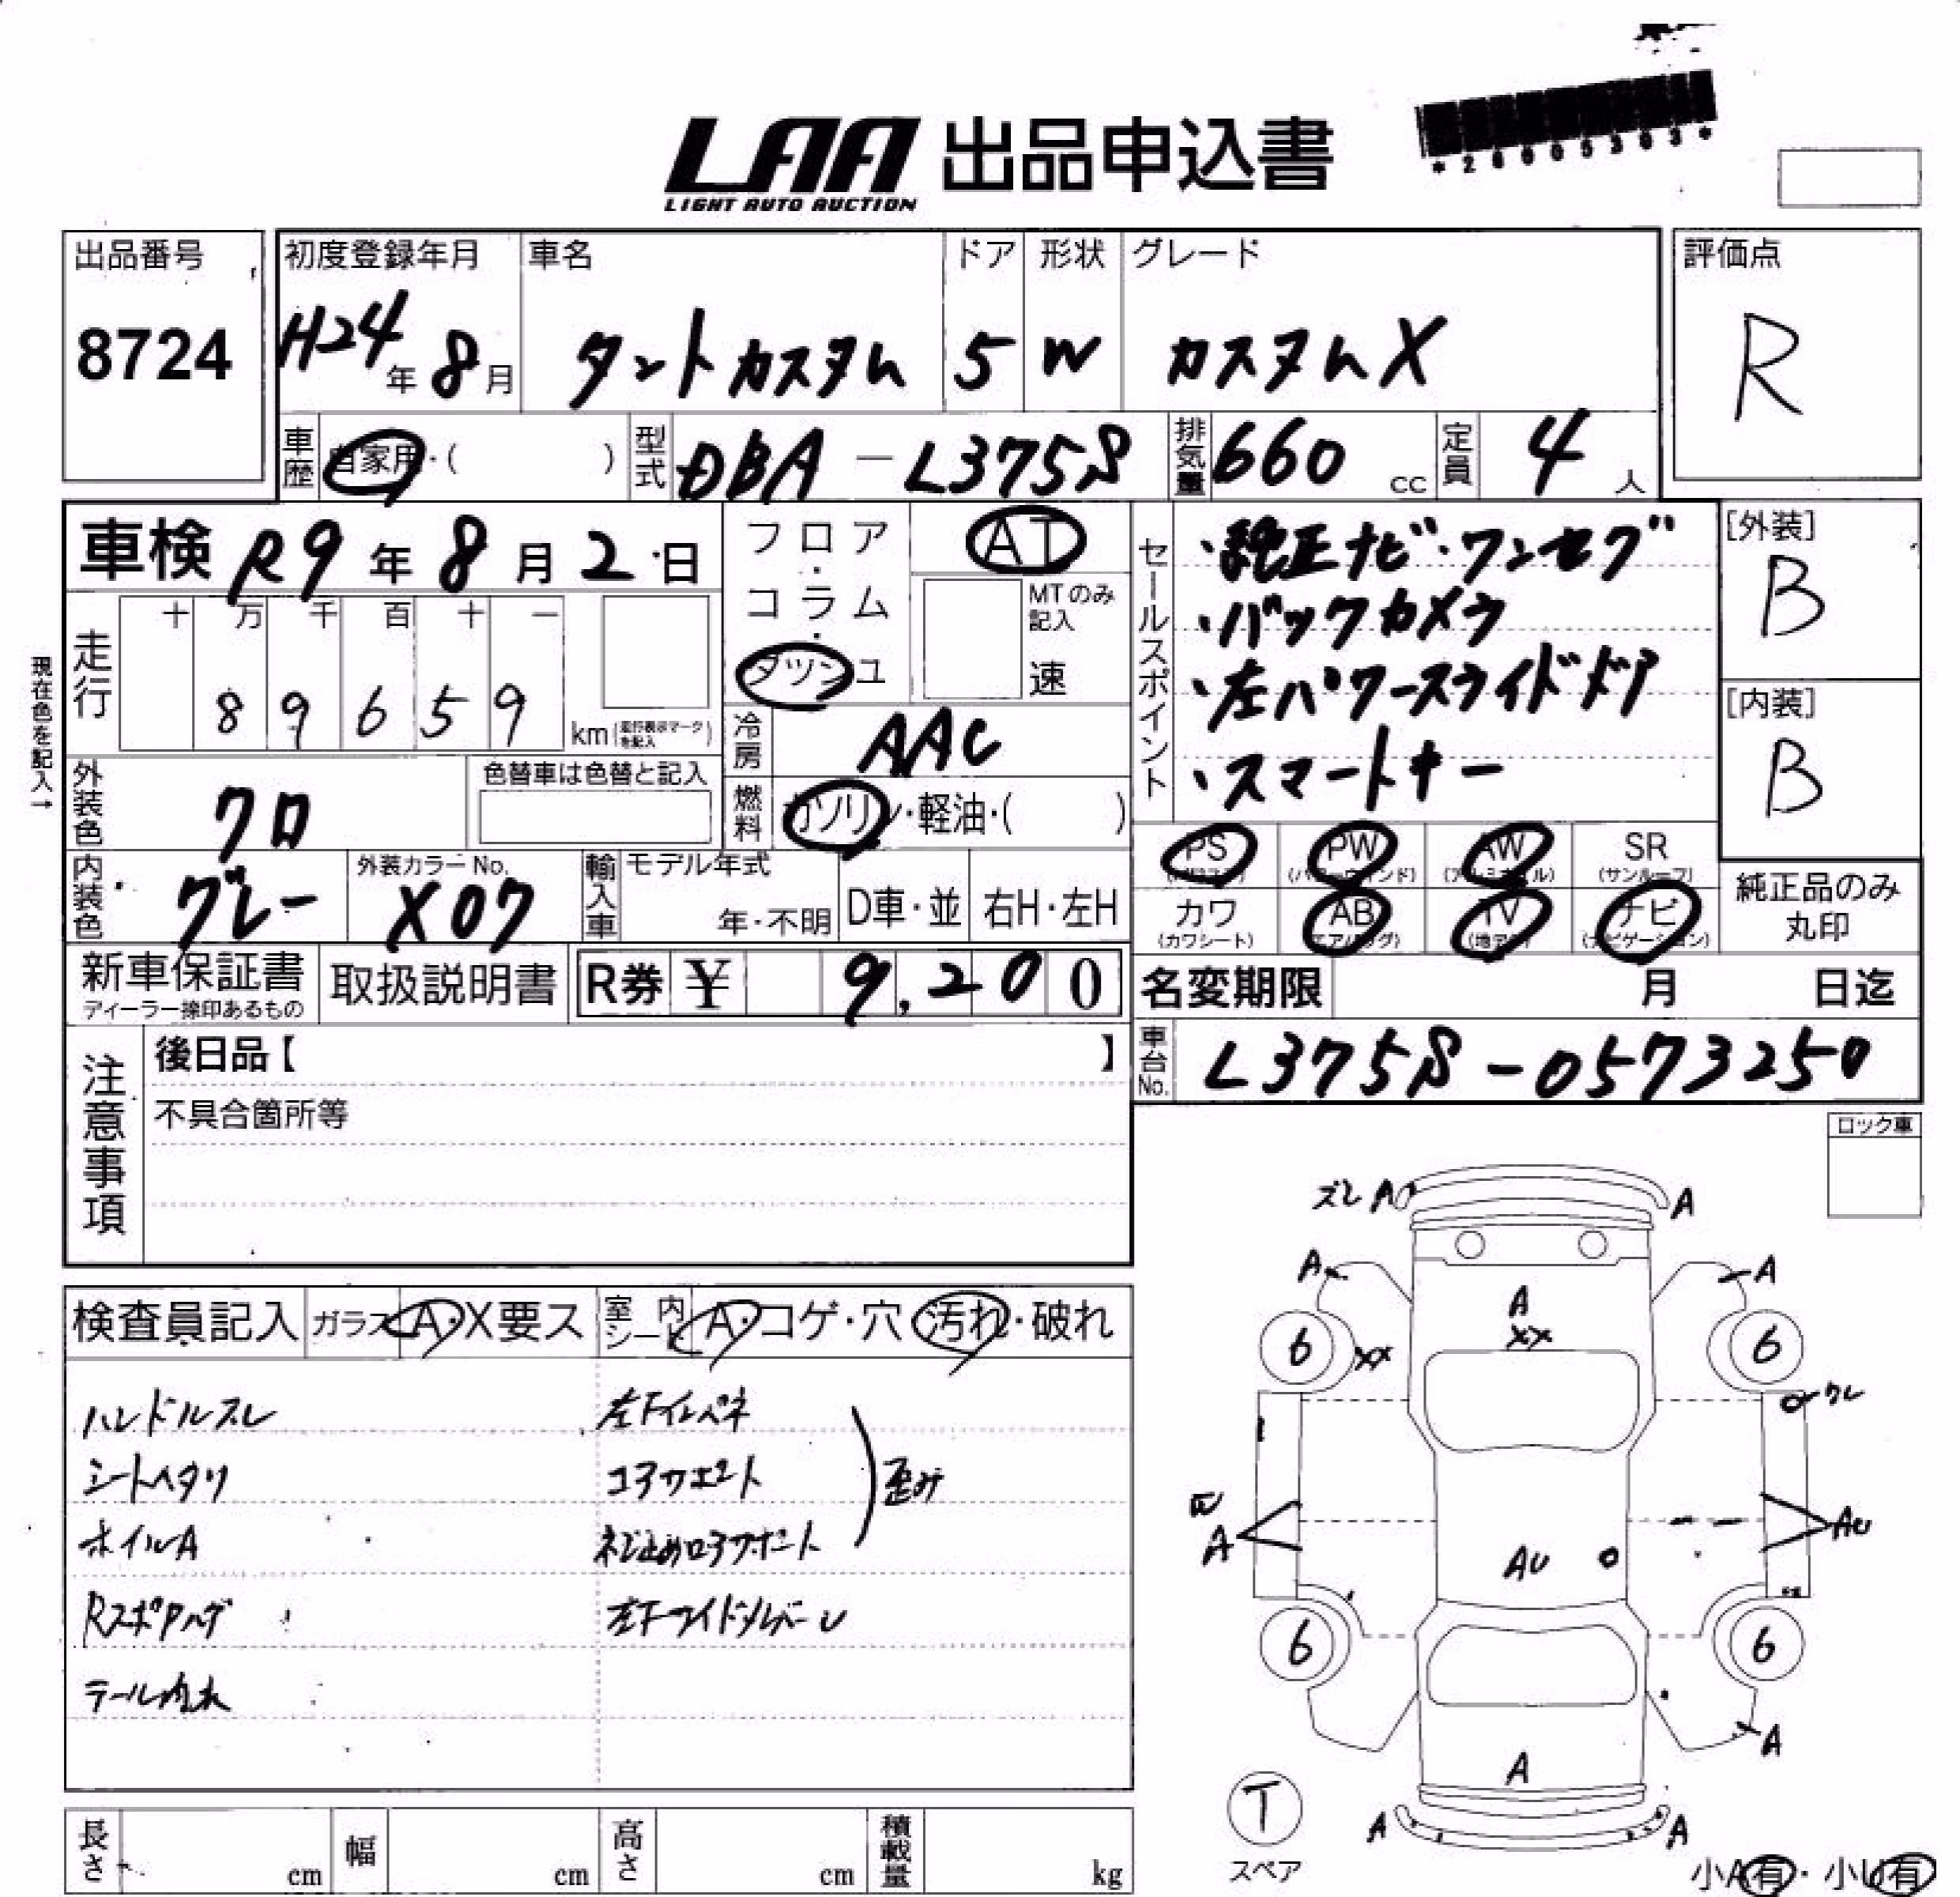 LAA 出品申込書
LIGHT AUTO AUCTION
出品番号
8724
初度登録年月
H24年 8月
車名
タントカスタム
ドア
5
形状
W
グレード
カスタムX
評価点
R
車歴 自家用・( )
型式 DBA-L375S
排気量 660 cc
定員 4人
車検 R9年 8月 2日
現在色を記入→
走行
十 万 千 百 十 一
8 9 6 5 9
km (走行表示マークを記入)
フロア・コラム・ダッシュ
AT
MTのみ記入
速
冷房 AAC
燃料 ガソリン・軽油・( )
セールスポイント
・純正ナビ・ワンセグ
・バックカメラ
・左パワースライドドア
・スマートキー
[外装]
B
[内装]
B
外装色 クロ
色替車は色替と記入
内装色 グレー
外装カラーNo.
X07
輸入車 モデル年式
年・不明
D車・並
右H・左H
PS PW AW SR
(サンルーフ)
カワ AB TV ナビ
(カワシート)
純正品のみ丸印
新車保証書
ディーラー捺印あるもの
取扱説明書
R券 ¥ 9,200
名変期限 月 日迄
車台No. L375S-0573250
注意事項
後日品【 】
不具合箇所等
ロック車
検査員記入
ガラス A・X要ス
室内シート A・コゲ・穴・汚れ・破れ
ハンドルスレ
シートヘタリ
ホイルA
Rスポアハゲ
テール内水
左Fインパネ
コアサポート
ネジ止めロアサポート
歪み
左Fサイドメンバーし
ズレ A A
A A
A
XX
6 6
XX
クレ
A
AU
AU
6 6
A
A
A A
T
スペア
小A有・小U有
長さ cm
幅 cm
高さ cm
積載量 kg